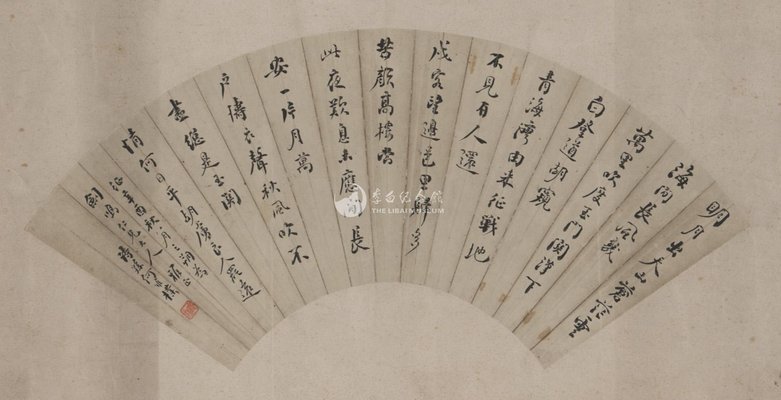 明月出天山蒼茫雲
海間長風幾
萬里吹度玉門關漢下
白登道胡窺
青海灣由来征戰地
不見有人還
戍客望邊邑思歸多
苦顏高樓當
此夜歎息未應閒長
安一片月萬
戶擣衣聲秋風吹不
盡總是玉關
情何日平胡虜良人罷遠
征辛酉秋月
劍鳴仁兄大人雅正
何維樸
李白纪念馆
THE LIBAI MUSEUM